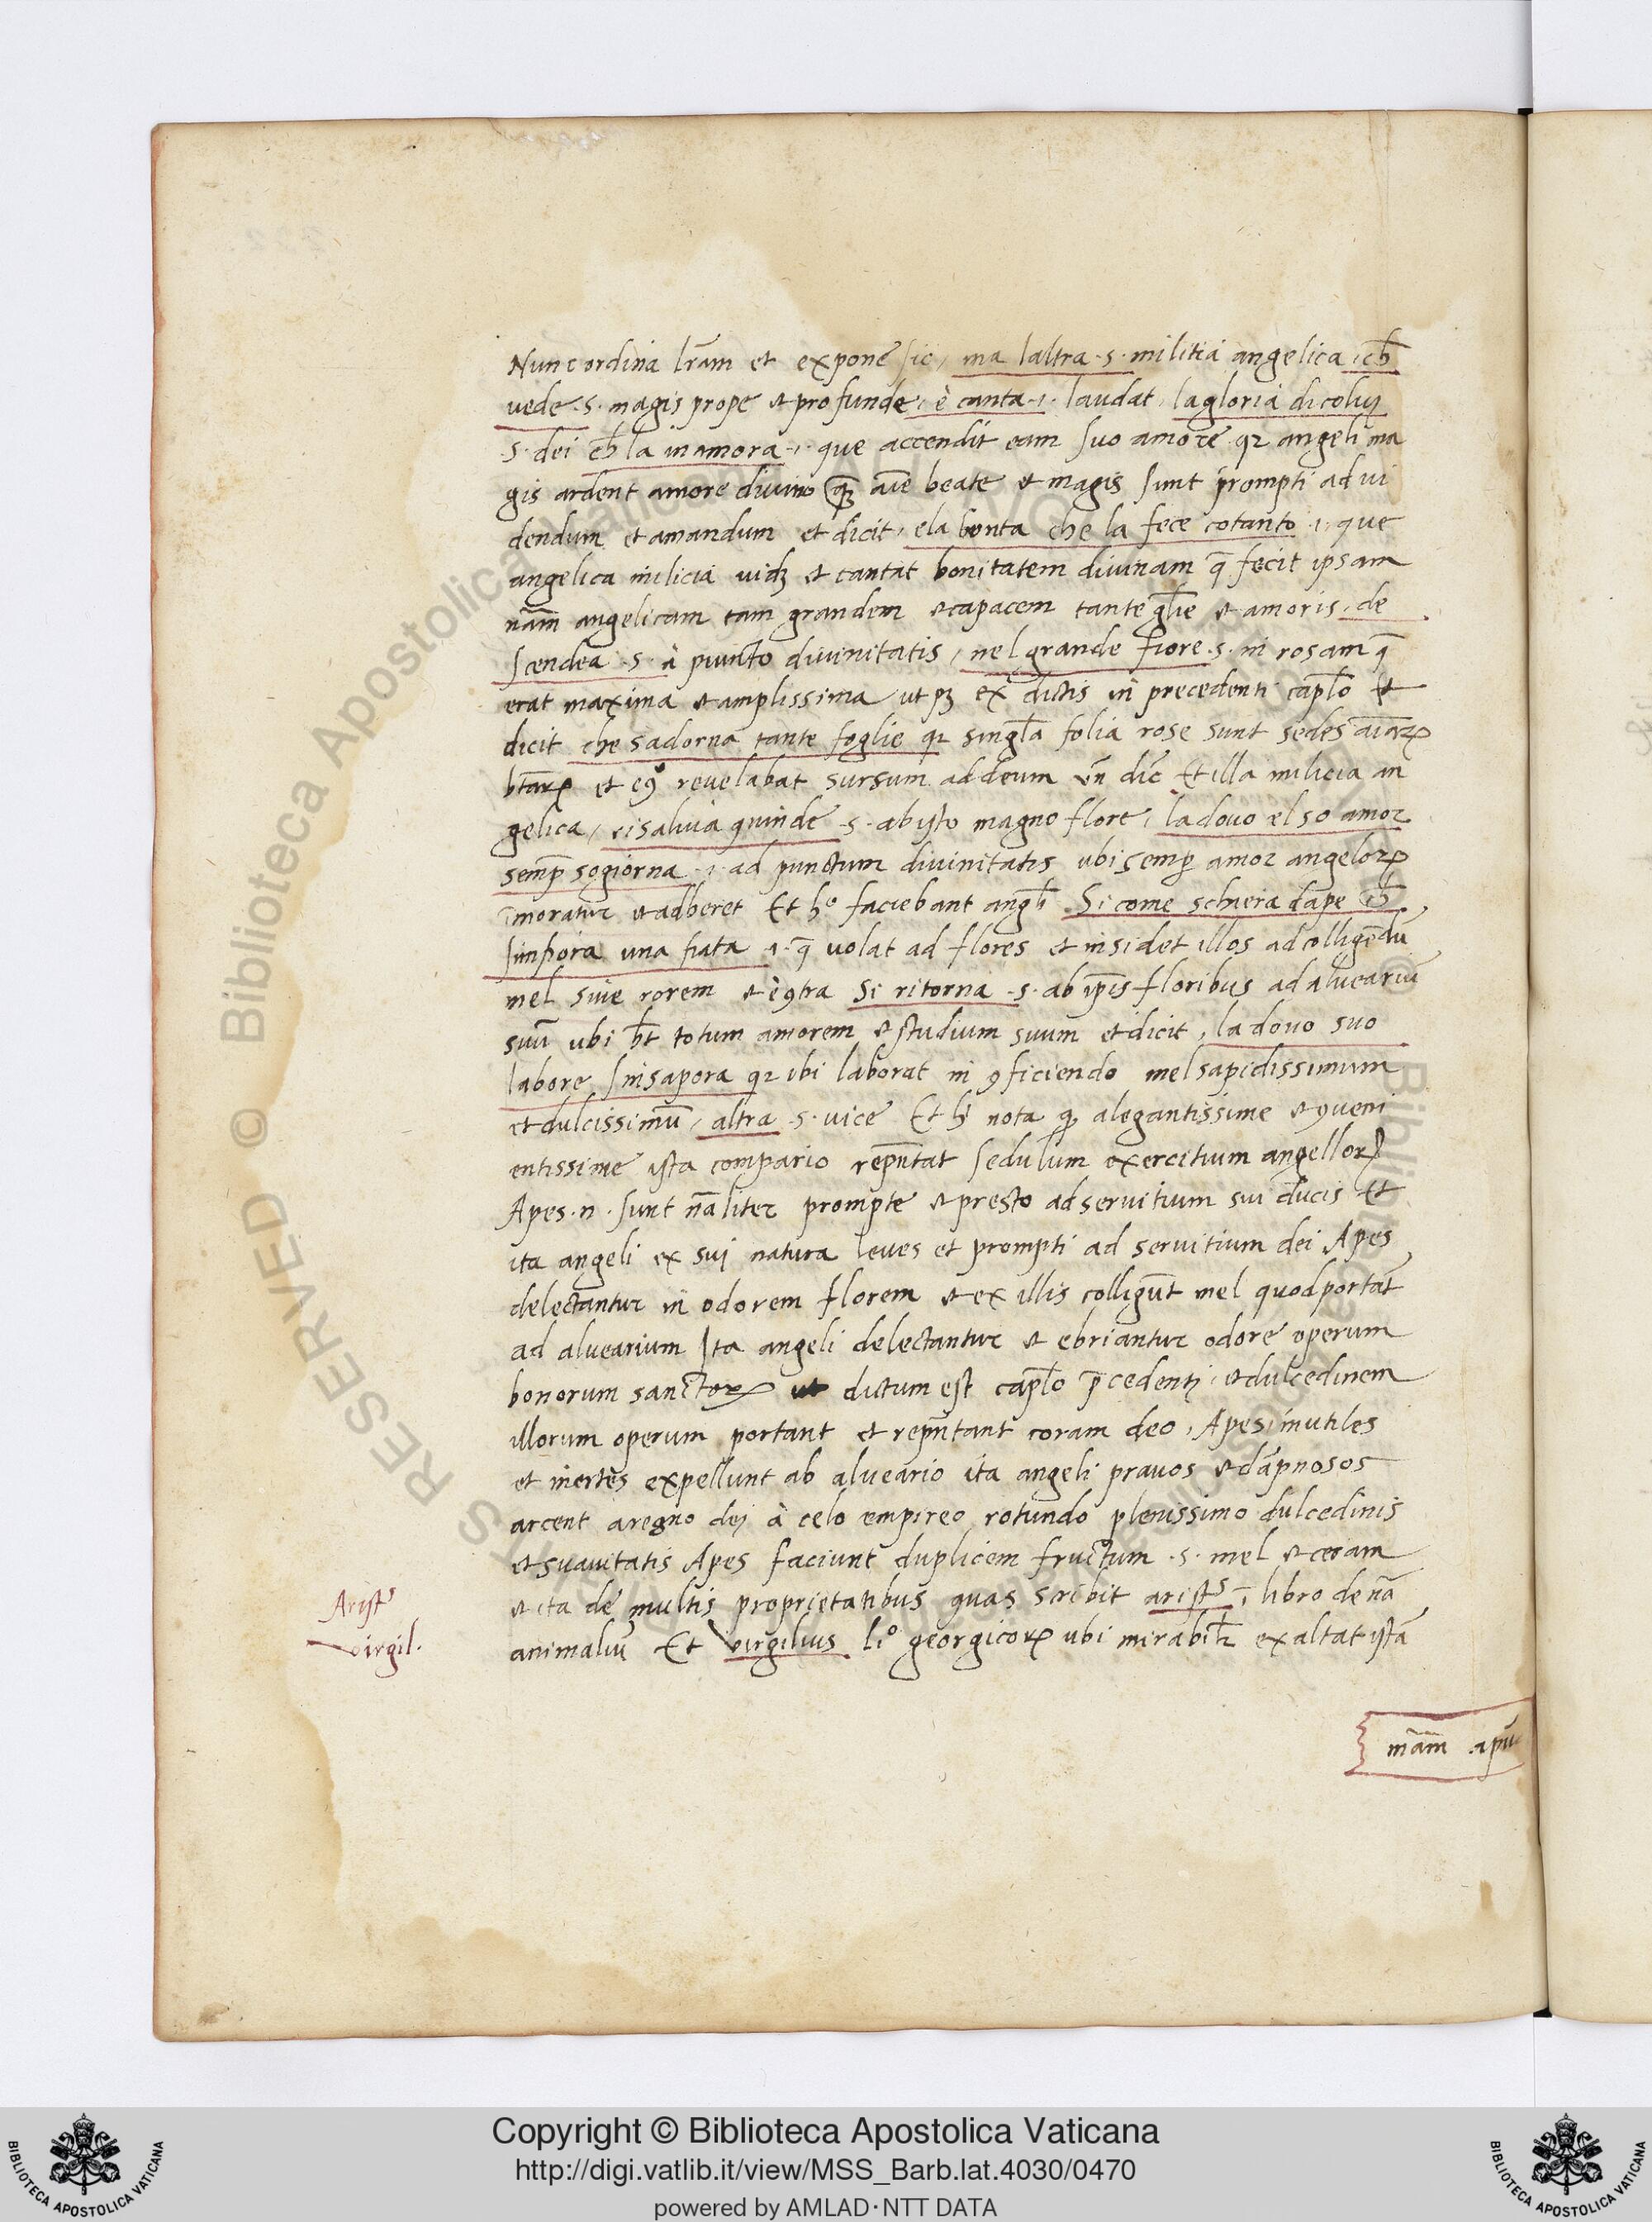 Nunc ordina lr̃am et expone sic, ma laltra .s. militia angelica, ch̄
vede .s. magis prope et profunde, è canta .i. laudat, la gloria di coluj
.s. dei ch̄ la inamora .i. que accendit eam suo amore qꝛ angeli ma
gis ardent amore divino qꝫ aĩe beate et magis sunt prompti ad vi
dendum et amandum et dicit, ela bonta che la fece cotanto .i. que
angelica milicia uidꝫ et cantat bonitatem divinam q̄ fecit ipsam
nãm angelicam tam grandem et capacem tante gl̄ie et amoris, de
scendea .s. à puncto divinitatis, nel grande fiore .s. in rosam q̄
erat maxima et amplissima ut pꝫ ex dictis in precedenti cap̃lo et
dicit che sadorna tante foglie qꝛ singl̃a folia rose sunt sedes aĩaꝝ
btãꝝ et eꝯ revelabat sursum ad deum vñ dic̃ Et illa milicia an
gelica, risaliuia quinde .s. ab isto magno flore, ladouo el so amor
semp̄ sogiorna .i. ad punctum divinitatis ubi semꝑ amor angeloꝝ
ĩmoratur et adheret Et hᵒ faciebant angl̄i Si come schiera dape ch̄
sinfiora una fiata .i. q̄ volat ad flores et insidet illos ad colligẽdũ
mel sive rorem et è ꝯtra Si ritorna .s. ab ip̃is floribus ad aluearium
suũ ubi h̄t totum amorem et studium suum et dicit, la dovo suo
labore sinsapora qꝛ ibi laborat in ꝯficiendo mel sapidissimum
et dulcissimũ, altra .s. vice Et hj nota ꝙ alegantissime et ꝯveni
entissime ista compario rep̃ntat sedulum exercitium angelloꝝ
Apes .n. sunt nãliter prompte et presto ad servitium sui ducis Et
ita angeli ex sui natura leves et prompti ad servitium dei Apes
delectantur in odorem florem et ex illis colligũt mel quod portãt
ad aluearium Ita angeli delectantur et ebriantur odore operum
bonorum sanctoꝝ ut dictum est cap̃lo p̄cedentj, et dulcedinem
illorum operum portant et rep̃ntant coram deo, Apes inutiles
et inertes expellunt ab alueario ita angeli pravos et dãpnosos
arcent a regno dej à celo empireo rotundo plenissimo dulcedinis
et suavitatis Apes faciunt duplicem fructum .s. mel et ceram
et ita de multis proprietatibus quas scribit aristˢ ĩ libro de nã
animaliũ Et virgilius liᵒ georgicoꝝ ubi mirabilr̃ exaltat istã
Aristˢ
virgil.
mãm apũ
Copyright © Biblioteca Apostolica Vaticana
http://digi.vatlib.it/view/MSS_Barb.lat.4030/0470
powered by AMLAD·NTT DATA
BIBLIOTECA APOSTOLICA VATICANA
BIBLIOTECA APOSTOLICA VATICANA